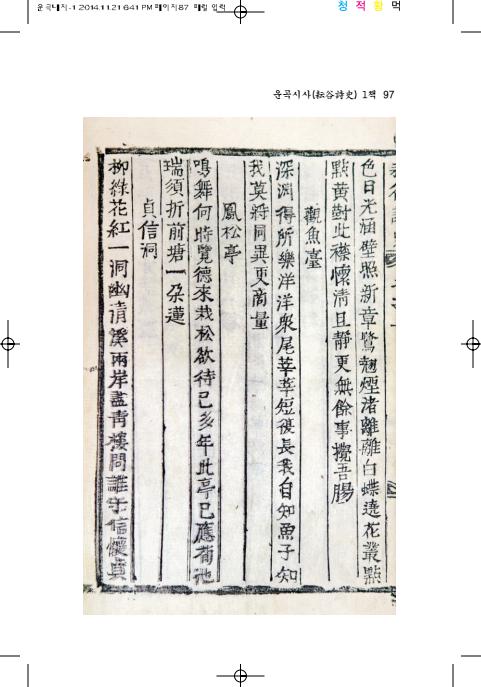 운곡내지-1 2014.11.21 6:41 PM 페이지87 매킬 입력
청 적 황 먹
운곡시사(耘谷詩史) 1책 97
色日光涵壁照新章鷺翹煙渚離離白蝶遶花叢點
點黃對此襟懷淸且靜更無餘事攪吾腸
觀魚臺
深淵得所樂洋洋衆尾莘莘短復長我自知魚子知
我莫將同異更商量
鳳松亭
鳴舞何時覽德來栽松欲待已多年此亭已應有祂
瑞須折前塘一朶蓮
貞信洞
柳綠花紅一洞幽淸溪兩岸盡靑樓問誰守信懷貞